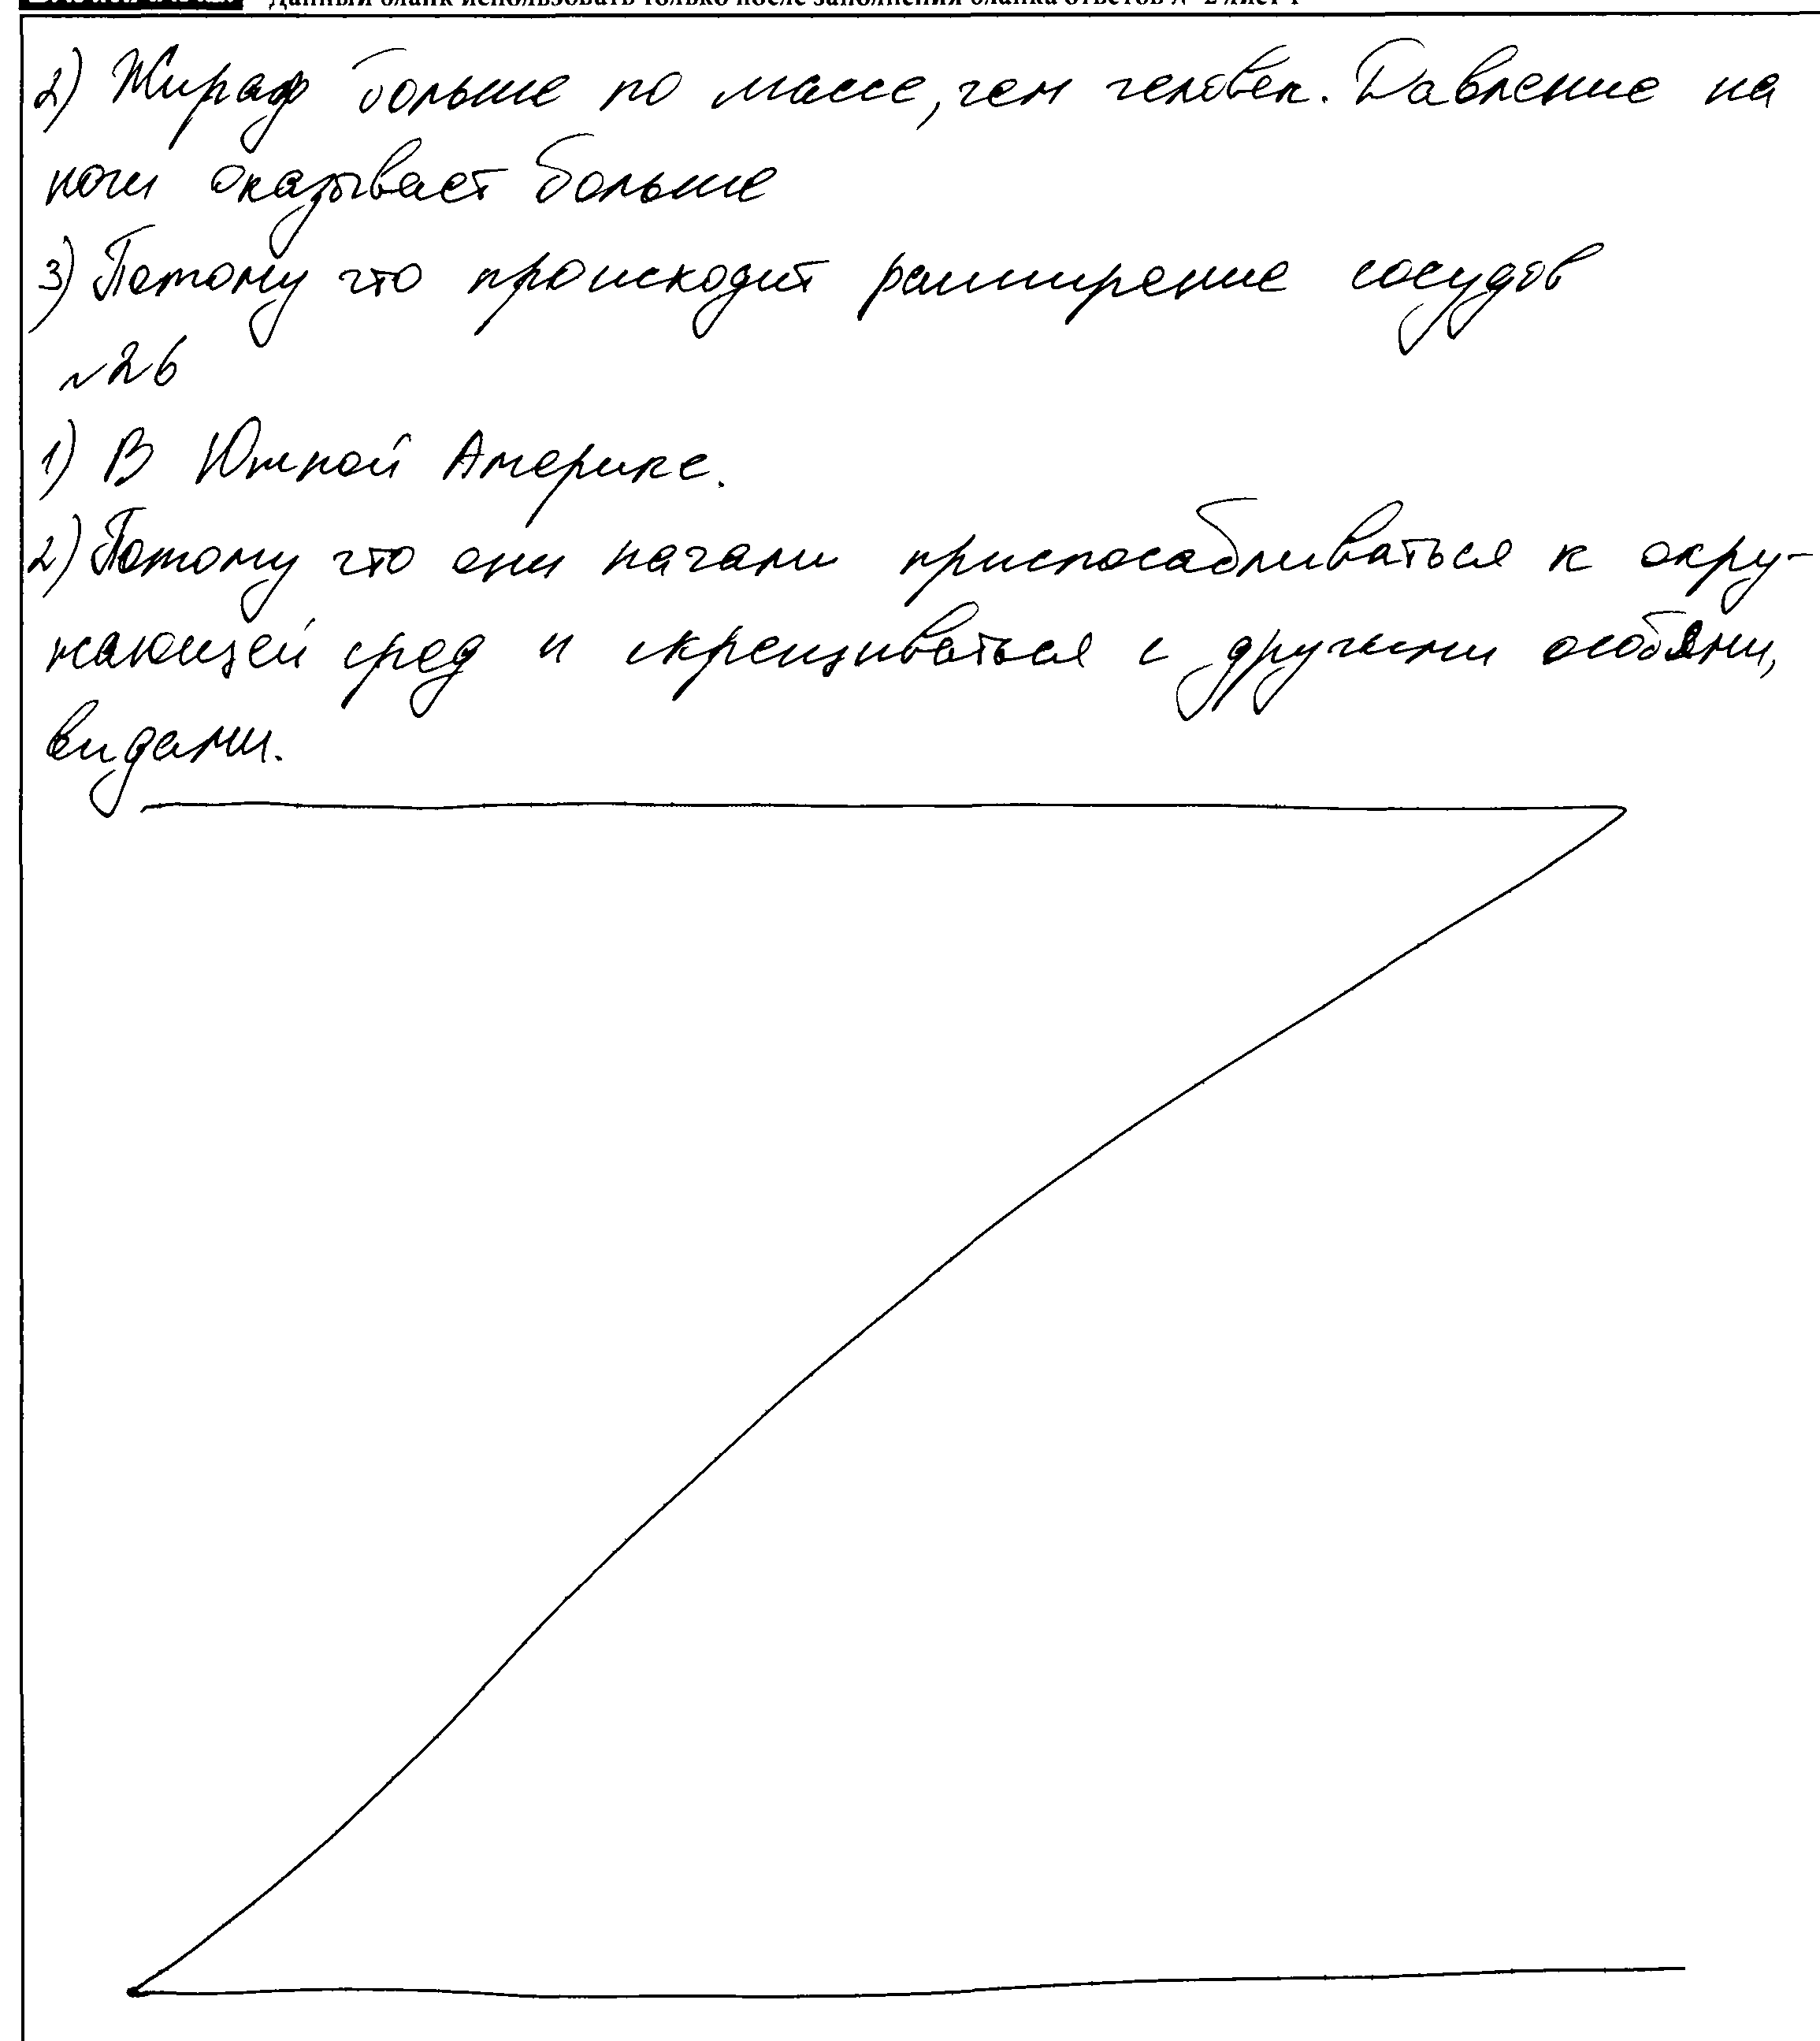 Данный бланк использовать только после заполнения бланка ответов № 2 лист 1
2) Жираф больше по массе, чем человек. Давление на
ноги оказывает больше
3) Потому что происходит расширение сосудов
№26
1) В Южной Америке.
2) Потому что они начали приспосабливаться к окру-
жающей сред и скрещиваться с другими особями,
видами.